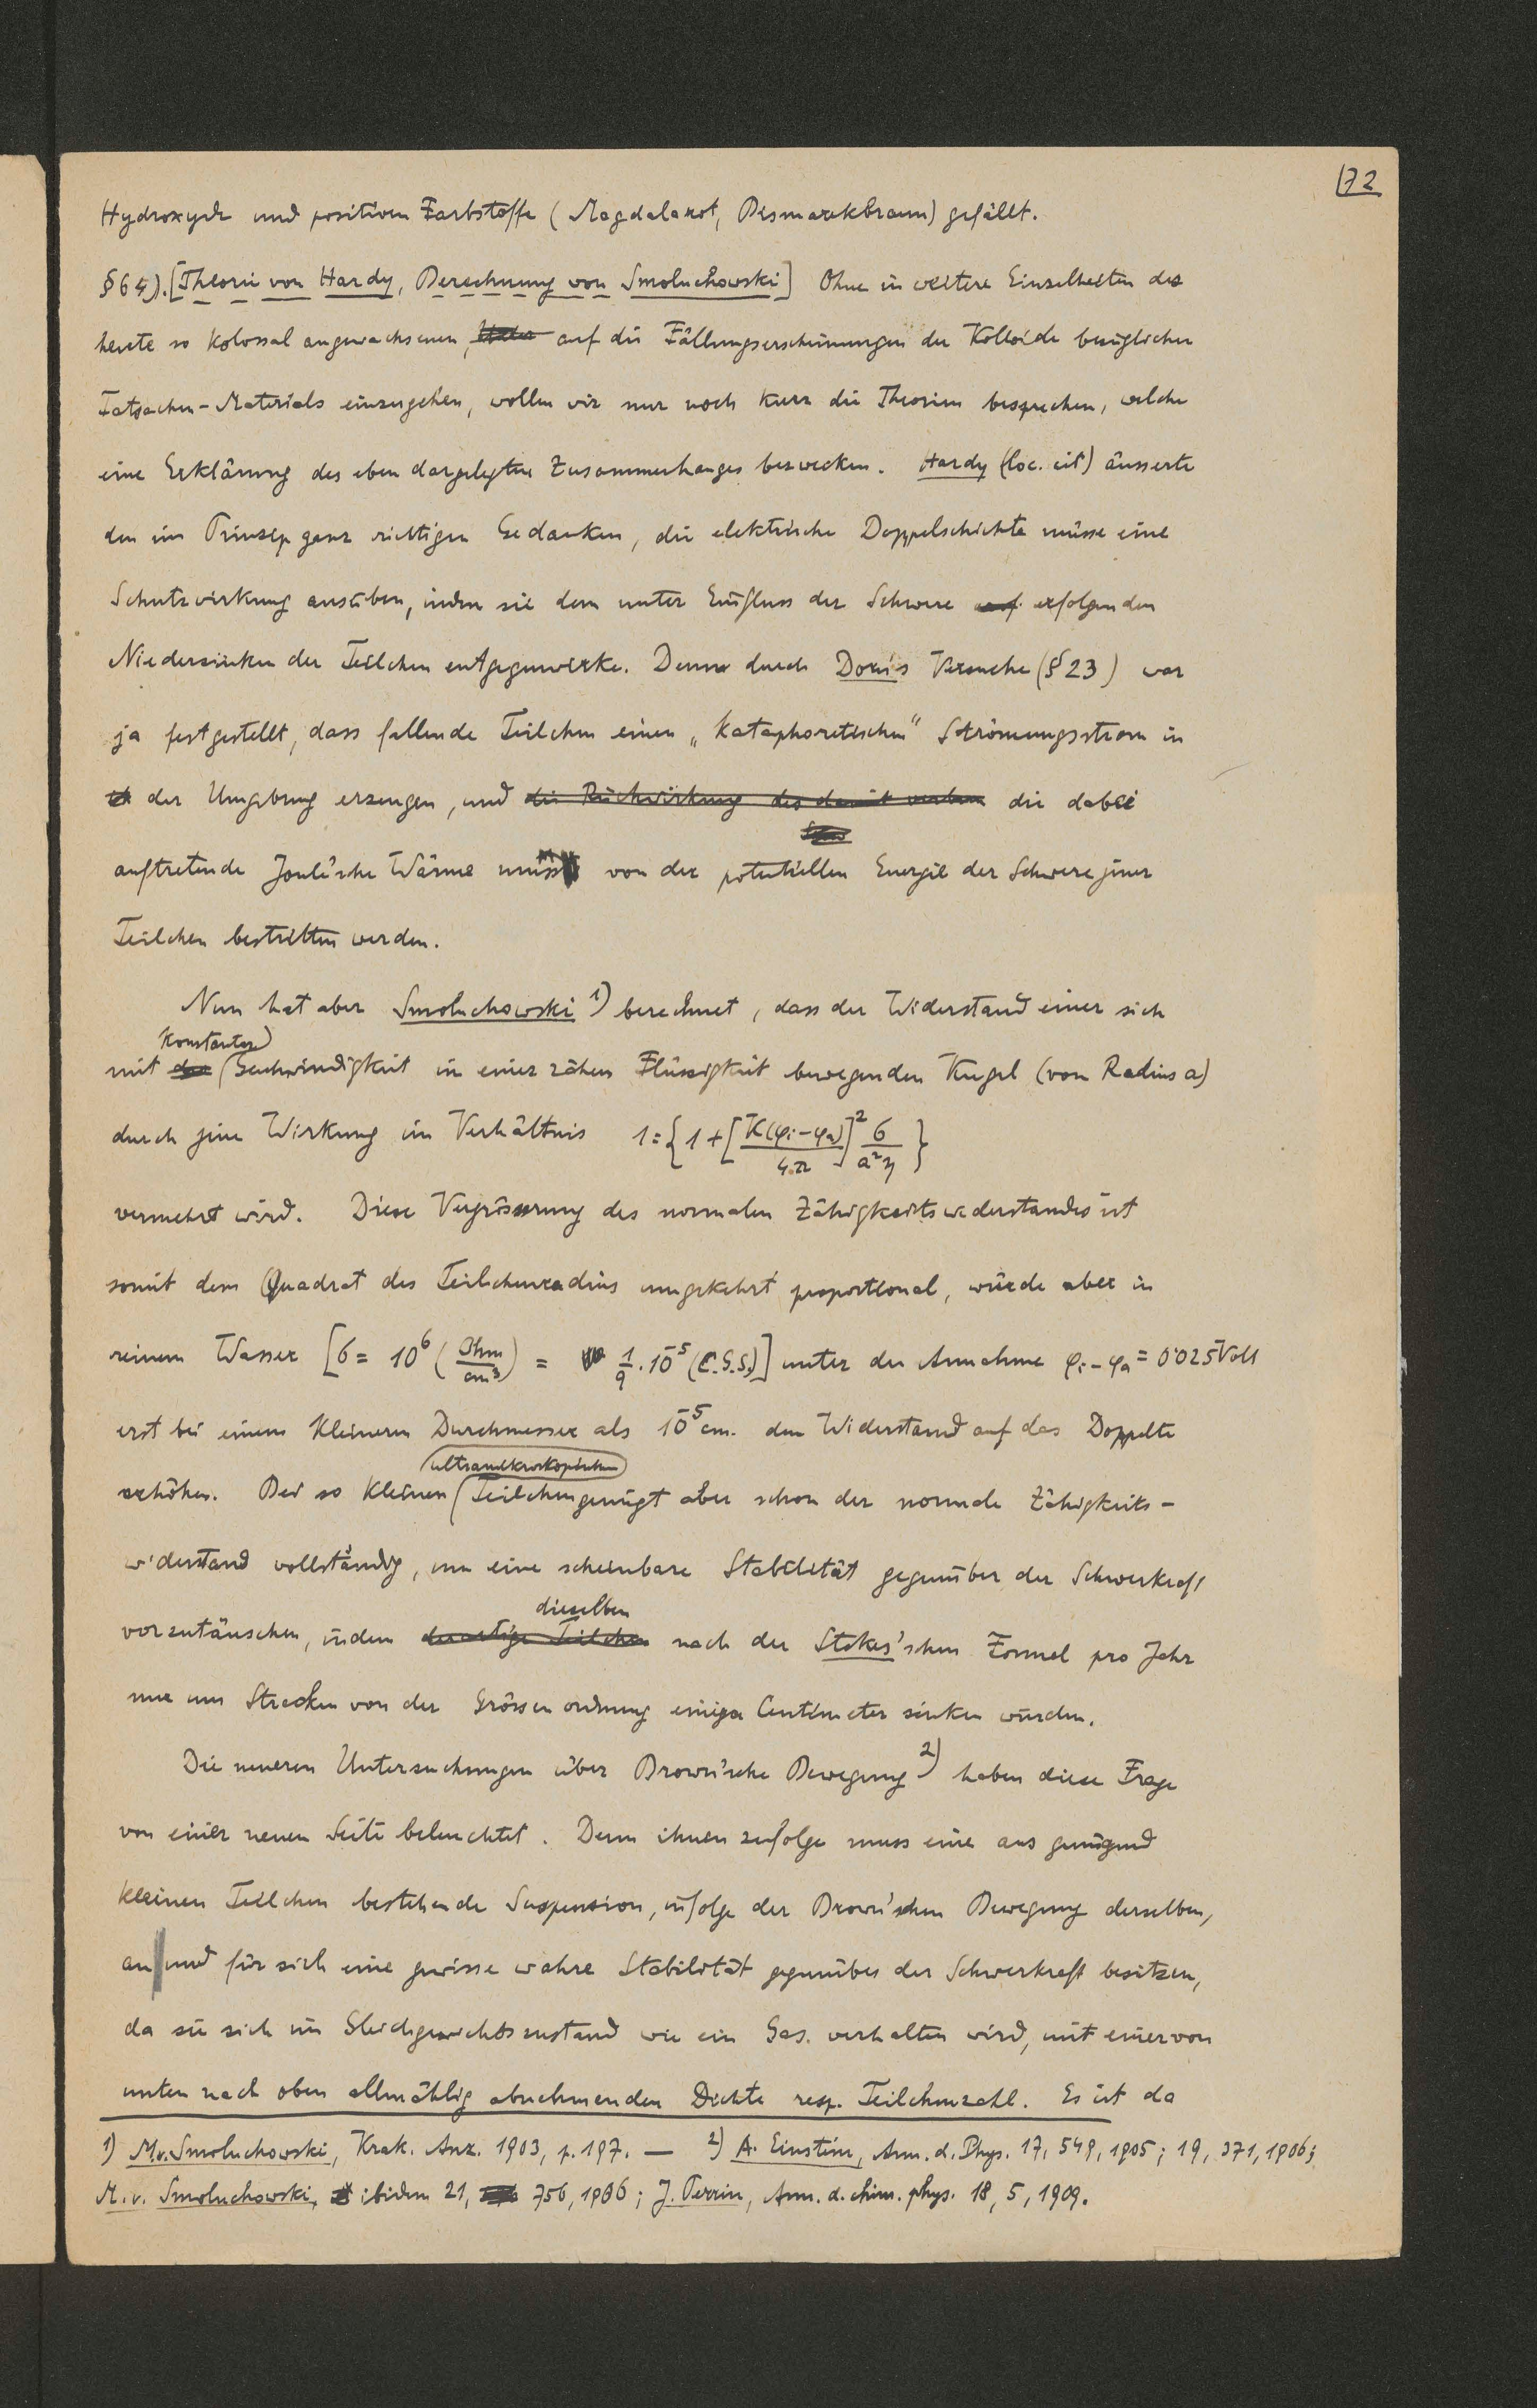 172
Hydroxyde und positiven Farbstoffe (Magdalarot, Bismarckbraun) gefällt.
§64). [Theorie von Hardy, Berechnung von Smoluchowski] Ohne in weitere Einzelheiten des
heute so kolossal angewachsenen, auf die Fällungserscheinungen der Kolloide bezüglichen
Tatsachen-Materials einzugehen, wollen wir nur noch kurz die Theorien besprechen, welche
eine Erklärung des eben dargelegten Zusammenhanges bezwecken. Hardy (loc. cit) äusserte
den im Prinzip ganz richtigen Gedanken, die elektrische Doppelschichte müsse eine
Schutzwirkung ausüben, indem sie dem unter Einfluss der Schwere erfolgenden
Niedersinken der Teilchen entgegenwirke. Denn durch Dorn's Versuche (§23) war
ja festgestellt, dass fallende Teilchen einen „kataphoretischen" Strömungsstrom in
der Umgebung erzeugen, und die Rückwirkung des damit verbun die dabei
auftretende Joule'sche Wärme muss von der potentiellen Energie der Schwere jener
Teilchen bestritten werden.
Nun hat aber Smoluchowski 1) berechnet, dass der Widerstand einer sich
mit konstanter Geschwindigkeit in einer zähen Flüssigkeit bewegenden Kugel (vom Radius a)
durch jene Wirkung im Verhältnis 1:{1+[K(φi-φa)/4π]² σ/a²η}
vermehrt wird. Diese Vergrösserung des normalen Zähigkeitswiderstandes ist
somit dem Quadrat des Teilchenradius umgekehrt proportional, würde aber in
reinem Wasser [σ = 10⁶ (Ohm/cm³) = 1/9 · 10⁻⁵ (C.G.S.)] unter der Annahme φi-φa = 0·025 Volt
erst bei einem kleineren Durchmesser als 10⁻⁵ cm. den Widerstand auf das Doppelte
erhöhen. Bei so kleinen ultramikroskopischen Teilchen genügt aber schon der normale Zähigkeits-
widerstand vollständig, um eine scheinbare Stabilität gegenüber der Schwerkraft
vorzutäuschen, indem derartige Teilchen dieselben nach der Stokes'schen Formel pro Jahr
nur um Strecken von der Grössenordnung einiger Centimeter sinken würden.
Die neueren Untersuchungen über Brown'sche Bewegung 2) haben diese Frage
von einer neuen Seite beleuchtet. Denn ihnen zufolge muss eine aus genügend
kleinen Teilchen bestehende Suspension, infolge der Brown'schen Bewegung derselben,
an und für sich eine gewisse wahre Stabilität gegenüber der Schwerkraft besitzen,
da sie sich im Gleichgewichtszustand wie ein Gas verhalten wird, mit einer von
unten nach oben allmählig abnehmenden Dichte resp. Teilchenzahl. Es ist da
1) M. v. Smoluchowski, Krak. Anz. 1903, p. 197. — 2) A. Einstein, Ann. d. Phys. 17, 549, 1905; 19, 371, 1906;
M. v. Smoluchowski, ibidem 21, 756, 1906; J. Perrin, Ann. d. chim. phys. 18, 5, 1909.